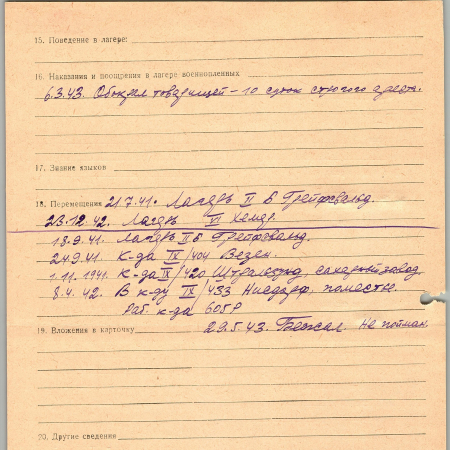 15. Поведение в лагере:
16. Наказания и поощрения в лагере военнопленных
6.3.43. Обокрал товарищей – 10 суток строгого ареста.
17. Знание языков
18. Перемещения 21.7.41. Лагерь II Б Грейфсвальд.
23.12.42. Лагерь VI Хемер
18.9.41. Лагерь II Б Грейфсвальд.
24.9.41. К-да IX/404
1.11.1941. К-да IX/420 сахарный завод.
8.4.42. В к-ду IX/433 поместье.
Раб. к-да 605 Р
29.5.43. Бежал. Не пойман.
19. Вложения в карточку
20. Другие сведения